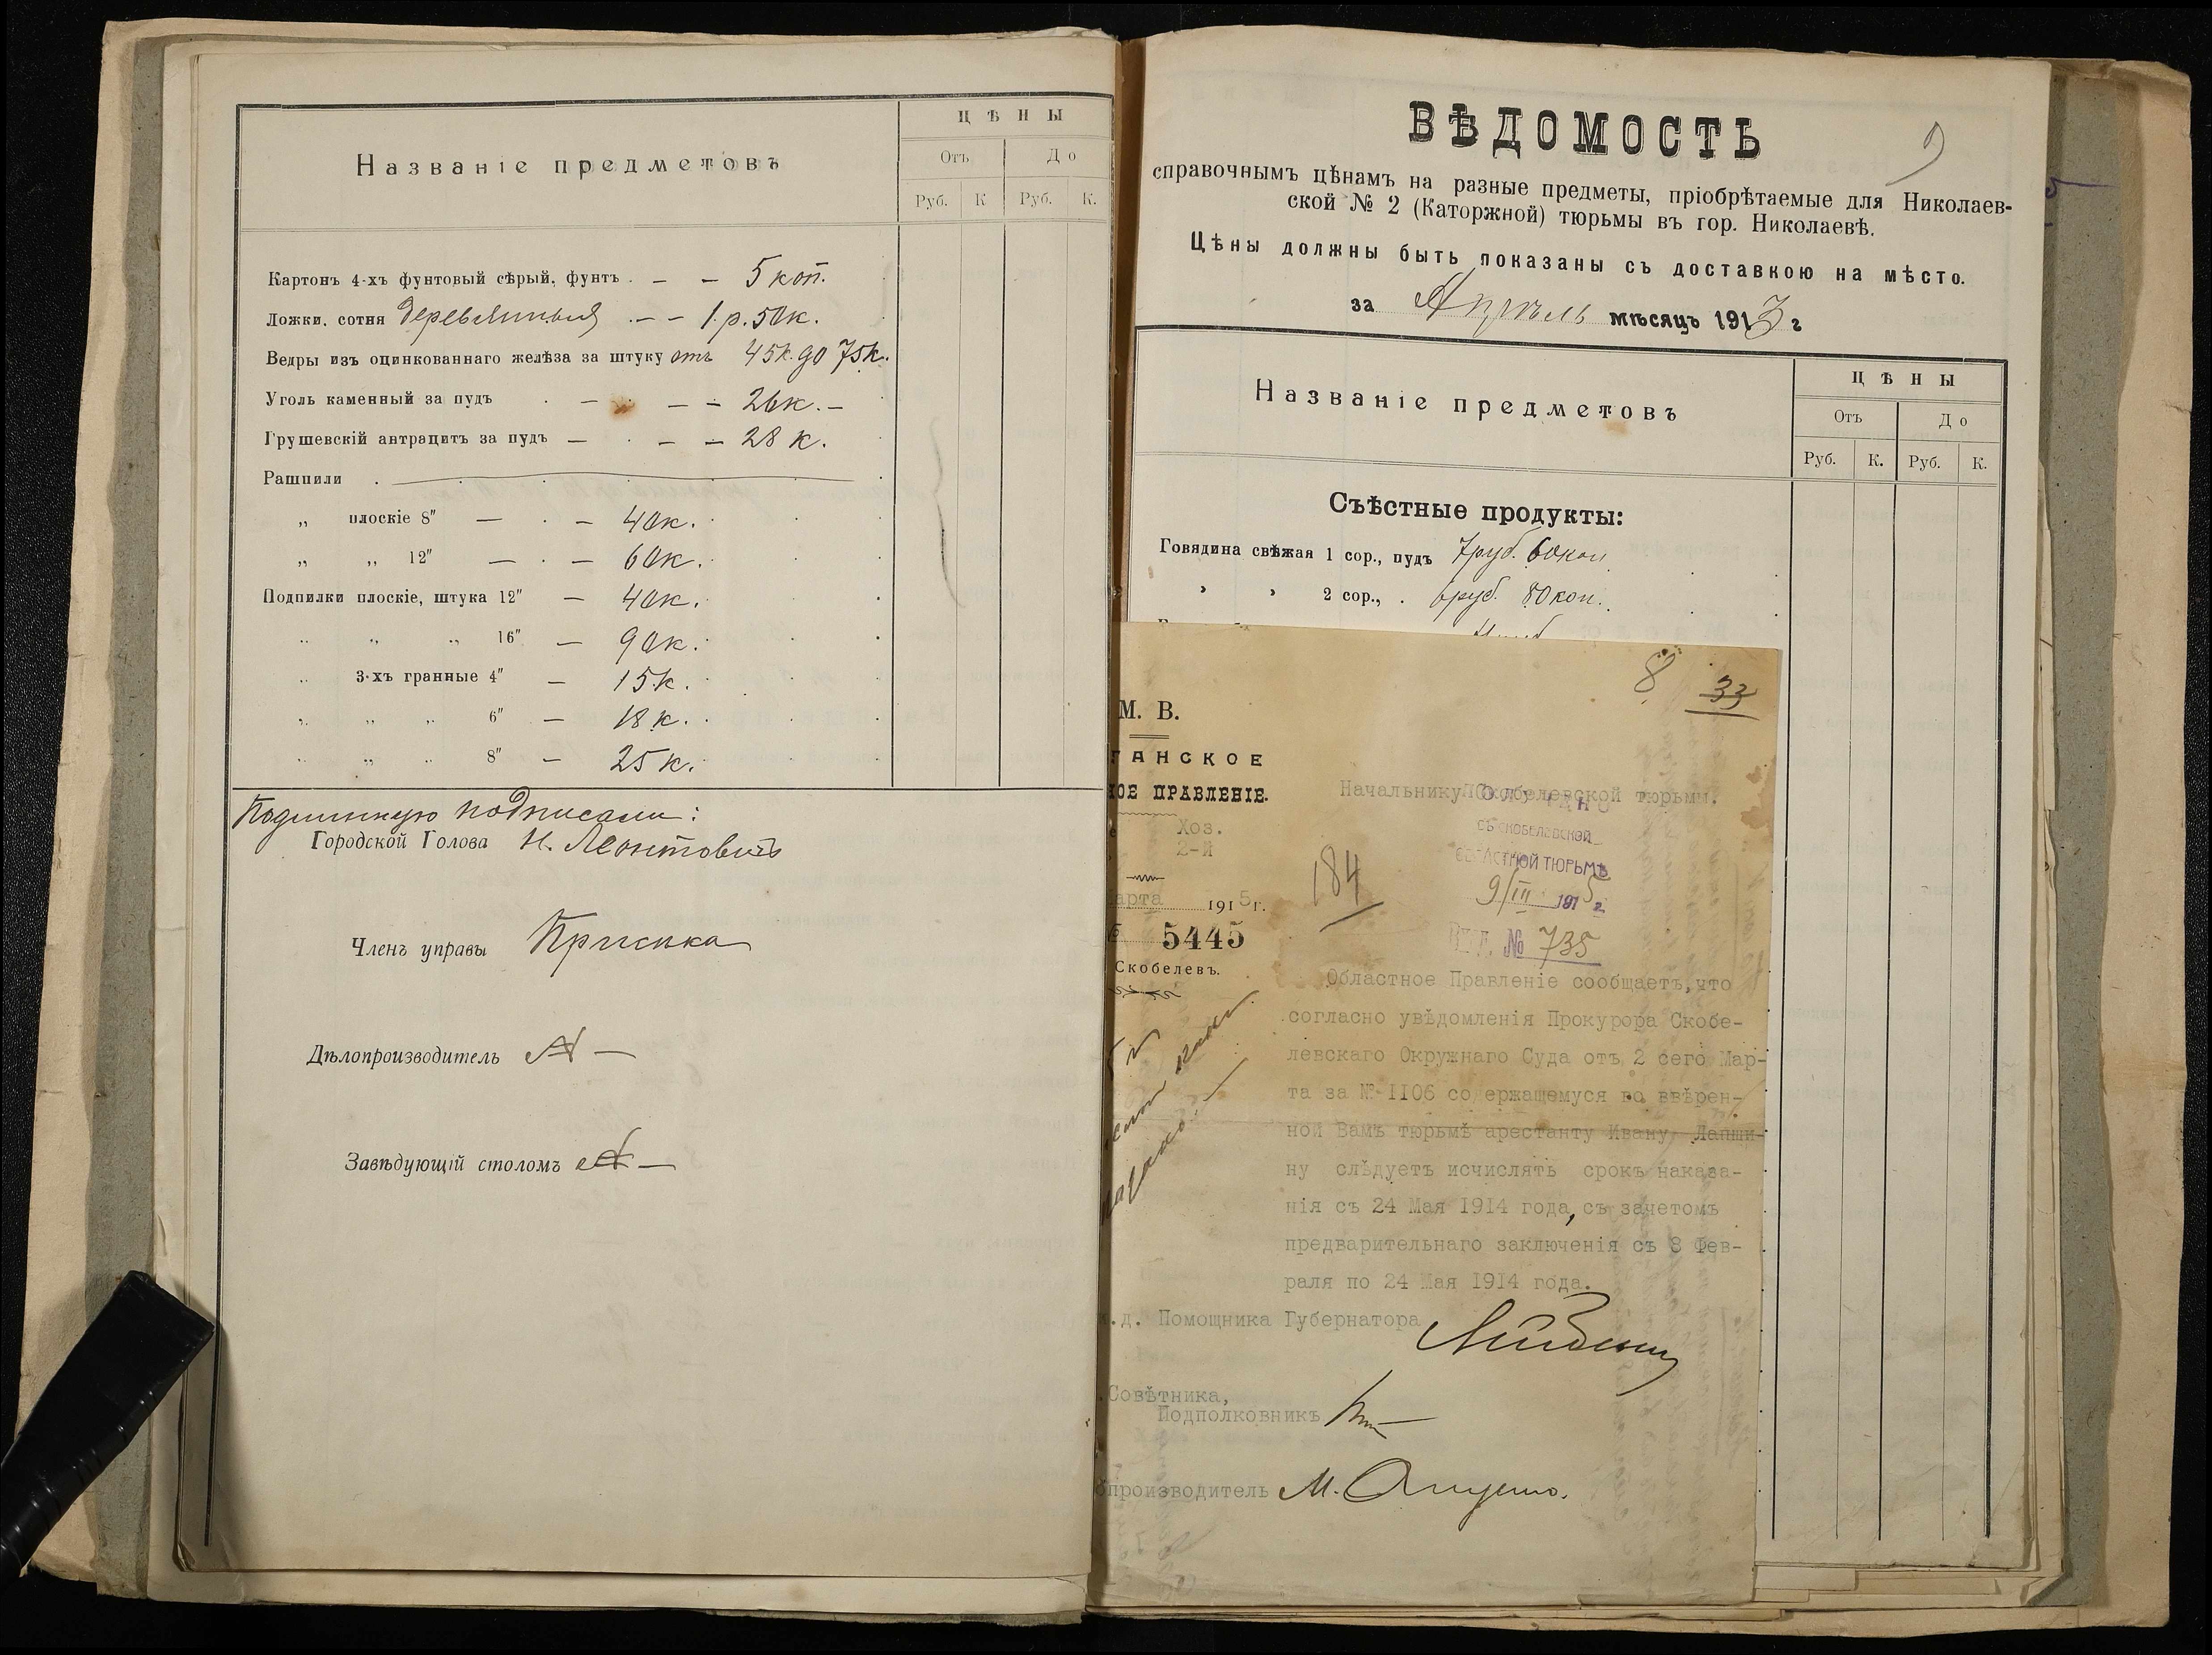 Названіе предметовъ
ЦѢНЫ
Отъ До
Руб. К Руб. К.
Картонъ 4-хъ фунтовый сѣрый, фунтъ . — — 5 коп.
Ложки, сотня деревянныя . — — 1 р. 50к.
Ведры изъ оцинкованнаго желѣза за штуку отъ 45к. до 75к.
Уголь каменный за пудъ — — — 26к. —
Грушевскій антрацитъ за пудъ — — — 28 к.
Рашпили
„ плоскіе 8" — — 40к.
„ „ 12" — — 60к.
Подпилки плоскіе, штука 12" — 40к.
„ „ „ 16" — 90к.
„ 3-хъ гранные 4" — 15к.
„ „ „ 6" — 18к.
„ „ „ 8" — 25к.
Подлинную подписали:
Городской Голова Н. Леонтовичъ
Членъ управы
Дѣлопроизводитель
Завѣдующій столомъ
ВѢДОМОСТЬ
9
справочнымъ цѣнамъ на разные предметы, пріобрѣтаемые для Николаев-
ской № 2 (Каторжной) тюрьмы въ гор. Николаевѣ.
Цѣны должны быть показаны съ доставкою на мѣсто.
за Апрѣль мѣсяцъ 1913 г
Названіе предметовъ
ЦѢНЫ
Отъ До
Руб. К. Руб. К.
Съѣстные продукты:
Говядина свѣжая 1 сор., пудъ 7 руб. 60 коп.
„ „ 2 сор., . 6 руб. 80 коп.
8 33
М. В.
ГАНСКОЕ
НОЕ ПРАВЛЕНІЕ.
Хоз.
2-й
арта 1915 г.
5445
Скобелевъ.
Начальнику Скобелевской тюрьмы.
ПОЛУЧЕНО
СЪ СКОБЕЛЕВСКОЙ
ОБЛАСТНОЙ ТЮРЬМѢ
9/III 1915 г.
ВХД. № 735
184
Областное Правленіе сообщаетъ, что
согласно увѣдомленія Прокурора Скобе-
левскаго Окружнаго Суда отъ 2 сего Мар-
та за № 1106 содержащемуся во ввѣрен-
ной Вамъ тюрьмѣ арестанту Ивану Лапши-
ну слѣдуетъ исчислять срокъ наказа-
нія съ 24 Мая 1914 года, съ зачетомъ
предварительнаго заключенія съ 8 Фев-
раля по 24 Мая 1914 года.
.д. Помощника Губернатора
Совѣтника,
Подполковникъ
производитель М.